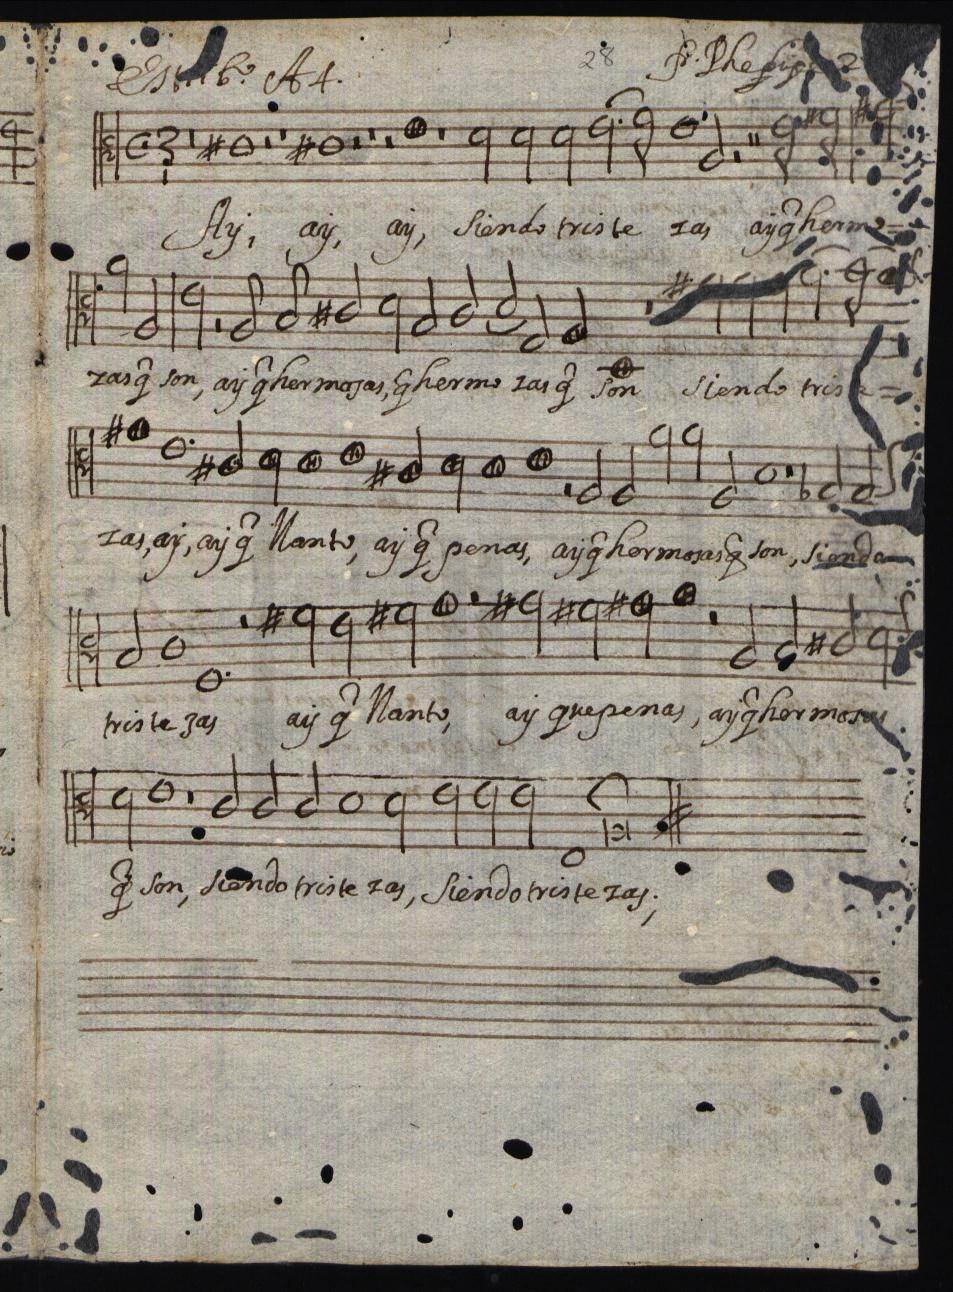 Estribo. A 4. 28
Ay, ay, ay, siendo triste zas ay q̃ hermo=
zas q̃ son, ay q̃ hermosas, q̃ hermo zas q̃ son siendo triste=
zas, ay, ay q̃ llanto, ay q̃ penas, ay q̃ hermosas q̃ son, siendo
triste zas ay q̃ llanto, ay que penas, ay q̃ hermosas
q̃ son, siendo triste zas, siendo triste zas;